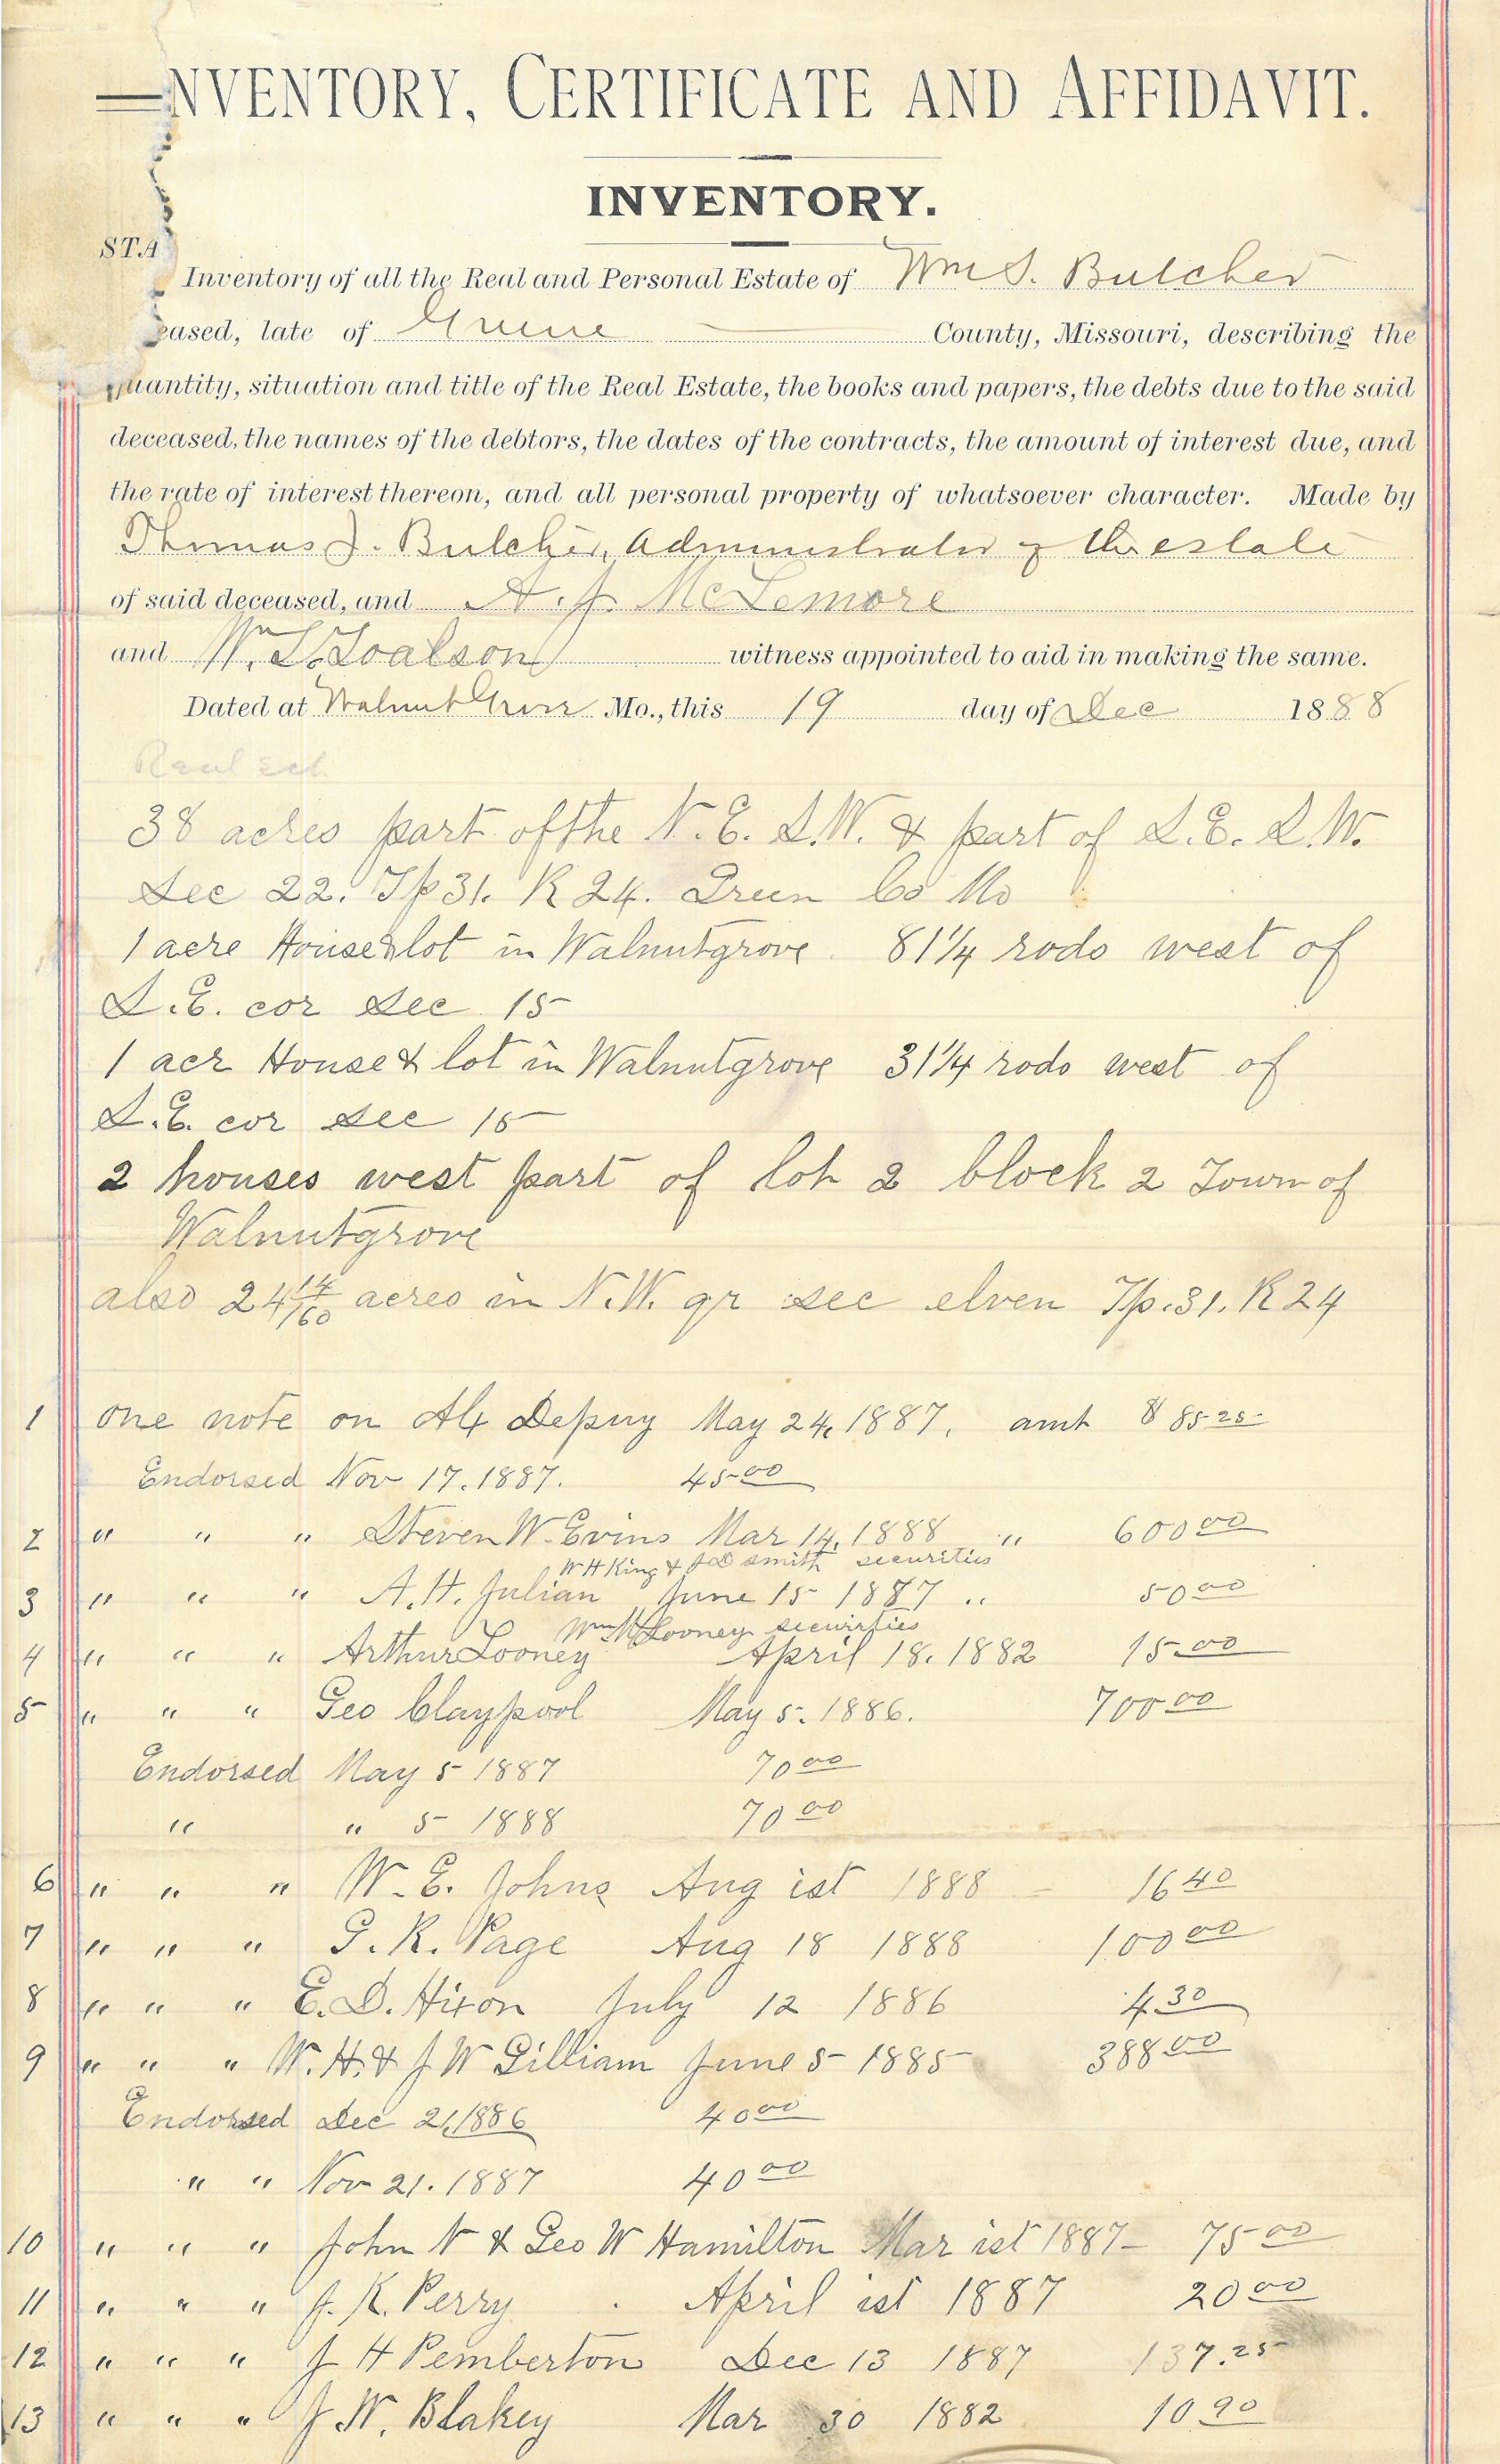 NVENTORY, CERTIFICATE AND AFFIDAVIT.
INVENTORY.
STA
Inventory of all the Real and Personal Estate of Wm S. Butcher
eased, late of Greene County, Missouri, describing the
quantity, situation and title of the Real Estate, the books and papers, the debts due to the said
deceased, the names of the debtors, the dates of the contracts, the amount of interest due, and
the rate of interest thereon, and all personal property of whatsoever character. Made by
Thomas J. Butcher, Administrator of the estate
of said deceased, and A. J. McLemore
and Wm T. Toalson witness appointed to aid in making the same.
Dated at Walnut Grove Mo., this 19 day of Dec 1888
Real
38 acres part of the N.E. S.W. & part of S.E. S.W.
Sec 22. Tp 31. R 24. Green Co Mo
1 acre House & lot in Walnutgrove 81 1/4 rods west of
S.E. cor Sec 15
1 acr House & lot in Walnutgrove 31 1/4 rods west of
S.E. cor Sec 15
2 houses west part of lot 2 block 2 Town of
Walnutgrove
also 24 14/160 acres in N.W. qr sec elven Tp. 31. R 24
1 one note on Depuy May 24, 1887. amt $ 85 25
Endorsed Nov 17. 1887. 45 00
2 " " " Steven W. Evins Mar 14, 1888 " 600 00
W H King & J D Smith securities
3 " " " A. H. Julian June 15 1887 " 50 00
Wm M Looney securities
4 " " " Arthur Looney April 18. 1882 15 00
5 " " " Geo Claypool May 5. 1886. 700 00
Endorsed May 5 1887 70 00
" " 5 1888 70 00
6 " " " W. E. Johns Aug ist 1888 16 40
7 " " " G. R. Page Aug 18 1888 100 00
8 " " " E. D. Hixon July 12 1886 4 30
9 " " " W. H. & J W Gilliam June 5 1885 388 00
Endorsed Dec 21, 1886 40 00
" " Nov 21. 1887 40 00
10 " " " John N & Geo W Hamilton Mar ist 1887 75 00
11 " " " J. K. Perry April ist 1887 20 00
12 " " " J H Pemberton Dec 13 1887 137.25
13 " " " J. W. Blakey Mar 30 1882 10 90